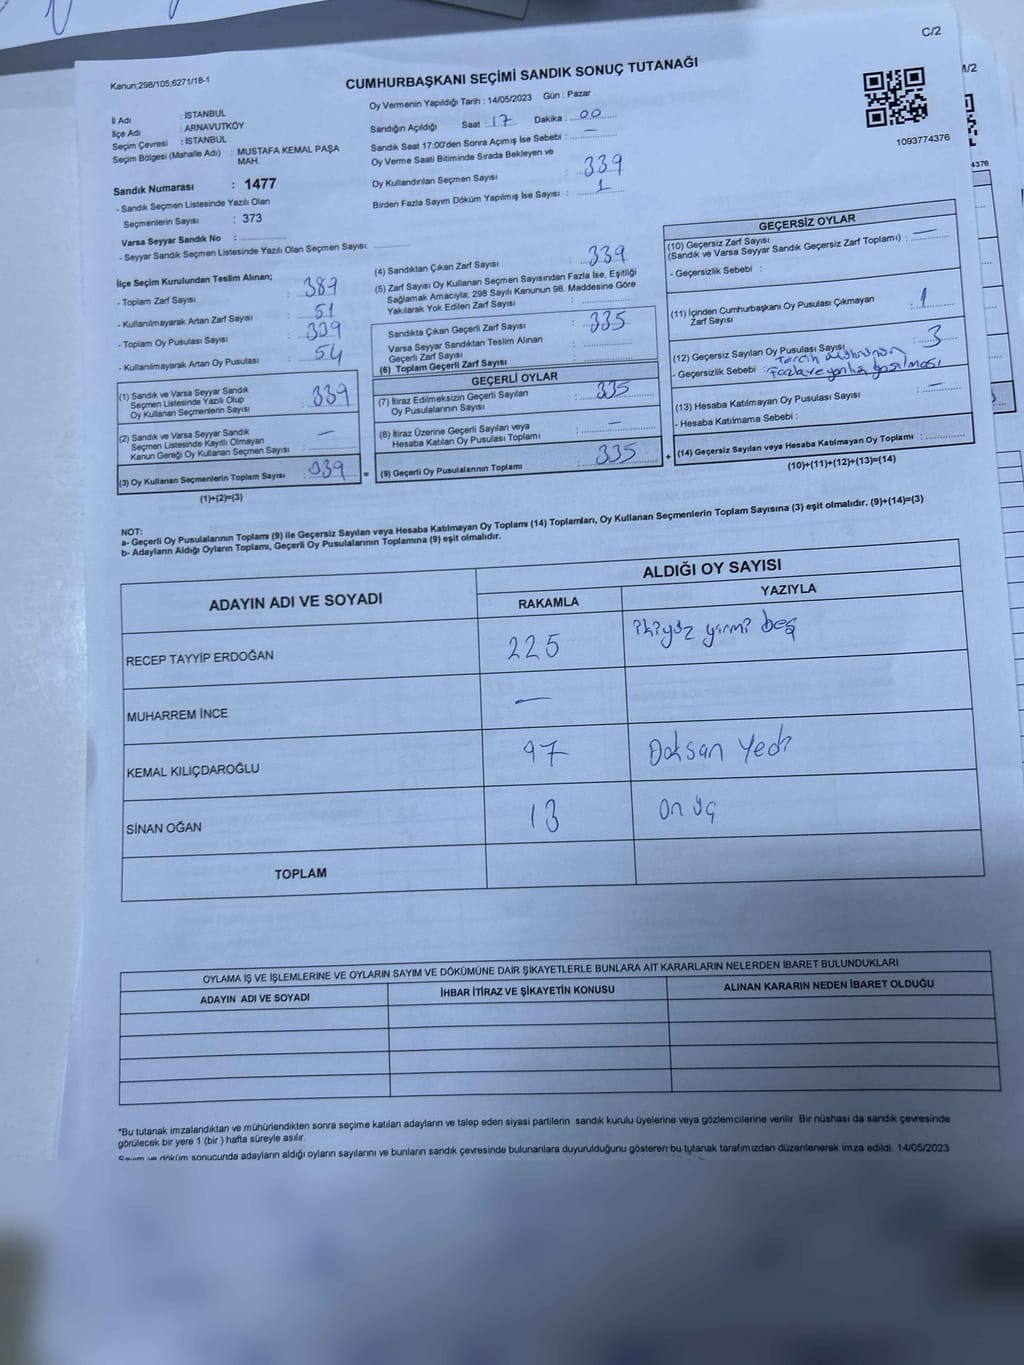 C/2
Kanun;298/105;6271/18-1
CUMHURBAŞKANI SEÇİMİ SANDIK SONUÇ TUTANAĞI
İl Adı : İSTANBUL
İlçe Adı : ARNAVUTKÖY
Seçim Çevresi : İSTANBUL
Seçim Bölgesi (Mahalle Adı) : MUSTAFA KEMAL PAŞA MAH.
Sandık Numarası : 1477
- Sandık Seçmen Listesinde Yazılı Olan
Seçmenlerin Sayısı : 373
Varsa Seyyar Sandık No :
- Seyyar Sandık Seçmen Listesinde Yazılı Olan Seçmen Sayısı:
Oy Vermenin Yapıldığı Tarih : 14/05/2023 Gün : Pazar
Sandığın Açıldığı Saat : 17 Dakika : 00
Sandık Saat 17:00'den Sonra Açımış İse Sebebi : —
Oy Verme Saati Bitiminde Sırada Bekleyen ve
Oy Kullandırılan Seçmen Sayısı : 339
Birden Fazla Sayım Döküm Yapılmış İse Sayısı : 1
1093774376
M/2
4376
İlçe Seçim Kurulundan Teslim Alınan;
- Toplam Zarf Sayısı : 389
- Kullanılmayarak Artan Zarf Sayısı : 51
- Toplam Oy Pusulası Sayısı : 339
- Kullanılmayarak Artan Oy Pusulası : 54
(1) Sandık ve Varsa Seyyar Sandık
Seçmen Listesinde Yazılı Olup
Oy Kullanan Seçmenlerin Sayısı : 339
(2) Sandık ve Varsa Seyyar Sandık
Seçmen Listesinde Kayıtlı Olmayan
Kanun Gereği Oy Kullanan Seçmen Sayısı : —
(3) Oy Kullanan Seçmenlerin Toplam Sayısı : 339 =
(1)+(2)=(3)
(4) Sandıktan Çıkan Zarf Sayısı : 339
(5) Zarf Sayısı Oy Kullanan Seçmen Sayısından Fazla İse, Eşitliği
Sağlamak Amacıyla; 298 Sayılı Kanunun 98. Maddesine Göre
Yakılarak Yok Edilen Zarf Sayısı :
Sandıkta Çıkan Geçerli Zarf Sayısı : 335
Varsa Seyyar Sandıktan Teslim Alınan
Geçerli Zarf Sayısı :
(6) Toplam Geçerli Zarf Sayısı :
GEÇERLİ OYLAR
(7) İtiraz Edilmeksizin Geçerli Sayılan
Oy Pusulalarının Sayısı : 335
(8) İtiraz Üzerine Geçerli Sayılan veya
Hesaba Katılan Oy Pusulası Toplamı : —
(9) Geçerli Oy Pusulalarının Toplamı : 335 +
GEÇERSİZ OYLAR
(10) Geçersiz Zarf Sayısı
(Sandık ve Varsa Seyyar Sandık Geçersiz Zarf Toplamı) : —
- Geçersizlik Sebebi :
(11) İçinden Cumhurbaşkanı Oy Pusulası Çıkmayan
Zarf Sayısı : 1
(12) Geçersiz Sayılan Oy Pusulası Sayısı : 3
- Geçersizlik Sebebi : Tercih mührünün
Fazla ve yanlış basılması
(13) Hesaba Katılmayan Oy Pusulası Sayısı : —
- Hesaba Katılmama Sebebi :
(14) Geçersiz Sayılan veya Hesaba Katılmayan Oy Toplamı :
(10)+(11)+(12)+(13)=(14)
NOT:
a- Geçerli Oy Pusulalarının Toplamı (9) ile Geçersiz Sayılan veya Hesaba Katılmayan Oy Toplamı (14) Toplamları, Oy Kullanan Seçmenlerin Toplam Sayısına (3) eşit olmalıdır. (9)+(14)=(3)
b- Adayların Aldığı Oyların Toplamı, Geçerli Oy Pusulalarının Toplamına (9) eşit olmalıdır.
ADAYIN ADI VE SOYADI
ALDIĞI OY SAYISI
RAKAMLA YAZIYLA
RECEP TAYYİP ERDOĞAN 225 ikiyüz yirmi beş
MUHARREM İNCE —
KEMAL KILIÇDAROĞLU 97 Doksan Yedi
SİNAN OĞAN 13 on üç
TOPLAM
OYLAMA İŞ VE İŞLEMLERİNE VE OYLARIN SAYIM VE DÖKÜMÜNE DAİR ŞİKAYETLERLE BUNLARA AİT KARARLARIN NELERDEN İBARET BULUNDUKLARI
ADAYIN ADI VE SOYADI İHBAR İTİRAZ VE ŞİKAYETİN KONUSU ALINAN KARARIN NEDEN İBARET OLDUĞU
*Bu tutanak imzalandıktan ve mühürlendikten sonra seçime katılan adayların ve talep eden siyasi partilerin sandık kurulu üyelerine veya gözlemcilerine verilir. Bir nüshası da sandık çevresinde
görülecek bir yere 1 (bir ) hafta süreyle asılır.
Sayım ve döküm sonucunda adayların aldığı oyların sayılarını ve bunların sandık çevresinde bulunanlara duyurulduğunu gösteren bu tutanak tarafımızdan düzenlenerek imza edildi. 14/05/2023